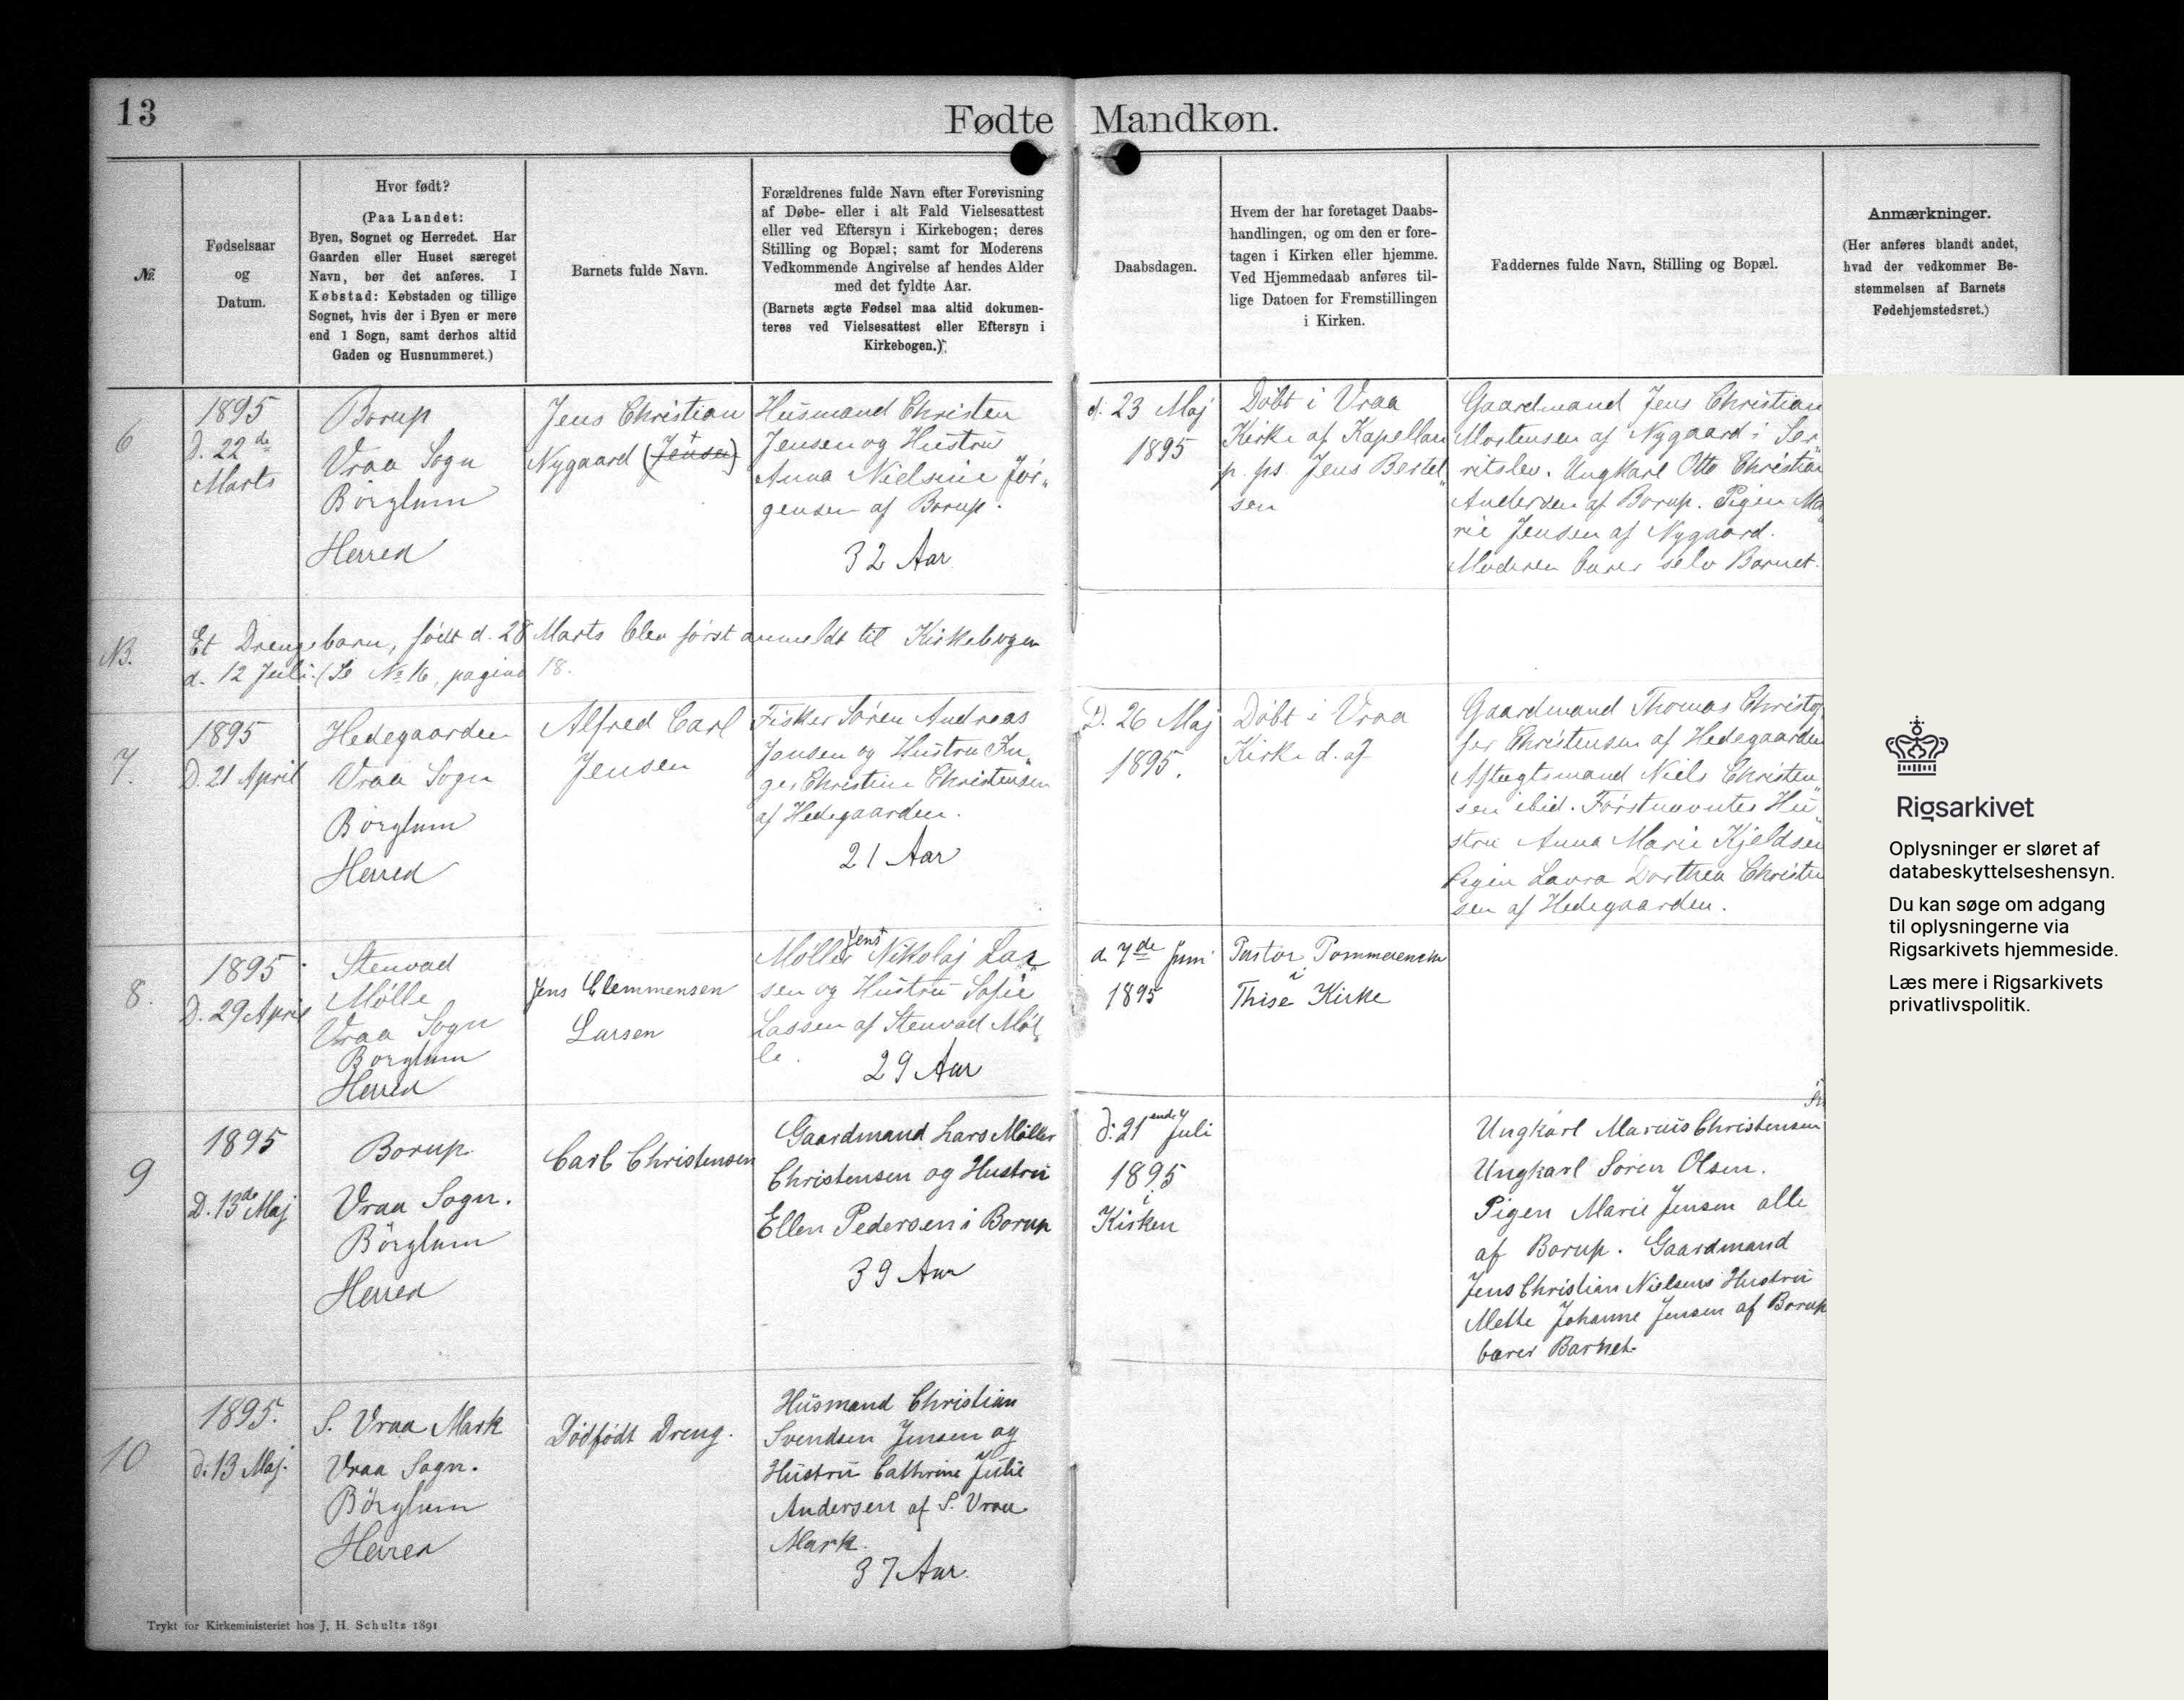 13
Fødte Mandkøn.
№.
Fødselsaar
og
Datum.
Hvor født?
(Paa Landet:
Byen, Sognet og Herredet. Har
Gaarden eller Huset særeget
Navn, bør det anføres. I
Købstad: Købstaden og tillige
Sognet, hvis der i Byen er mere
end 1 Sogn, samt derhos altid
Gaden og Husnummeret.)
Barnets fulde Navn.
Forældrenes fulde Navn efter Forevisning
af Døbe- eller i alt Fald Vielsesattest
eller ved Eftersyn i Kirkebogen; deres
Stilling og Bopæl; samt for Moderens
Vedkommende Angivelse af hendes Alder
med det fyldte Aar.
(Barnets ægte Fødsel maa altid dokumen-
teres ved Vielsesattest eller Eftersyn i
Kirkebogen.)
Daabsdagen.
Hvem der har foretaget Daabs-
handlingen, og om den er fore-
tagen i Kirken eller hjemme.
Ved Hjemmedaab anføres til-
lige Datoen for Fremstillingen
i Kirken.
Faddernes fulde Navn, Stilling og Bopæl.
Anmærkninger.
(Her anføres blandt andet,
hvad der vedkommer Be-
stemmelsen af Barnets
Fødehjemstedsret.)
6
1895
D. 22de
Marts
Borup
Vraa Sogn
Börglum
Herred
Jens Christian
Nygaard (Jensen)
Husmand Christen
Jensen og Hustru
Anna Nielsine Jör„
gensen af Borup.
32 Aar
d. 23 Maj
1895
Döbt i Vraa
Kirke af Kapellan
p. ps. Jens Bertel„
sen
Gaardmand Jens Christian
Mortensen af Nygaard i Ser„
ritslev. Ungkarl Otto Christian
Andersen af Borup. Pigen Ma„
rie Jensen af Nygaard.
Moderen bares selv Barnet.
NB.
Et Drengebarn, födt d. 28 Marts blev först anmeldt til Kirkebogen
d. 12 Juli. (Se № 16, pagina 18.
7.
1895
D. 21 April
Hedegaarden
Vraa Sogn
Börglum
Herred
Alfred Carl
Jensen
Fisker Sören Andreas
Jensen og Hustru In„
ger Christine Christensen
af Hedegaarden.
21 Aar
D. 26 Maj
1895.
Döbt i Vraa
Kirke d. af
Gaardmand Thomas Christof„
fer Christensen af Hedegaarden
Aftægtsmand Niels Christen„
sen ibid. Förstnævntes Hu„
stru Anna Marie Kjeldsen
Pigen Laura Dorthea Christen
sen af Hedegaarden.
8.
1895
D. 29 April
Stenvad
Mölle
Vraa Sogn
Börglum
Herred
Jens Clemmensen
Larsen
Möller Jens Nikolaj Lar„
sen og Hustru Sofie
Lassen af Stenvad Möl„
le.
29 Aar
d. 7de Juni
1895
Pastor
i
Thise Kirke
9
1895
D. 13de Maj
Borup
Vraa Sogn.
Börglum
Herred
Carl Christensen
Gaardmand Lars Möller
Christensen og Hustru
Ellen Pedersen i Borup
39 Aar
d: 21ende Juli
1895
i
Kirken
Ungkarl Marius Christensen
Ungkarl Sören Olsen.
Pigen Marie Jensen alle
af Borup. Gaardmand
Jens Christian Nielsens Hustru
Mette Johanne Jensen af Borup
bærer Barnet.
10
1895.
d: 13 Maj.
S. Vraa Mark
Vraa Sogn.
Börglum
Herred
Dödfödt Dreng.
Husmand Christian
Svendsen Jensen og
Hustru Cathrine Julie
Andersen af S. Vraa
Mark.
37 Aar.
Trykt for Kirkeministeriet hos J. H. Schultz 1891
Rigsarkivet
Oplysninger er sløret af
databeskyttelseshensyn.
Du kan søge om adgang
til oplysningerne via
Rigsarkivets hjemmeside.
Læs mere i Rigsarkivets
privatlivspolitik.